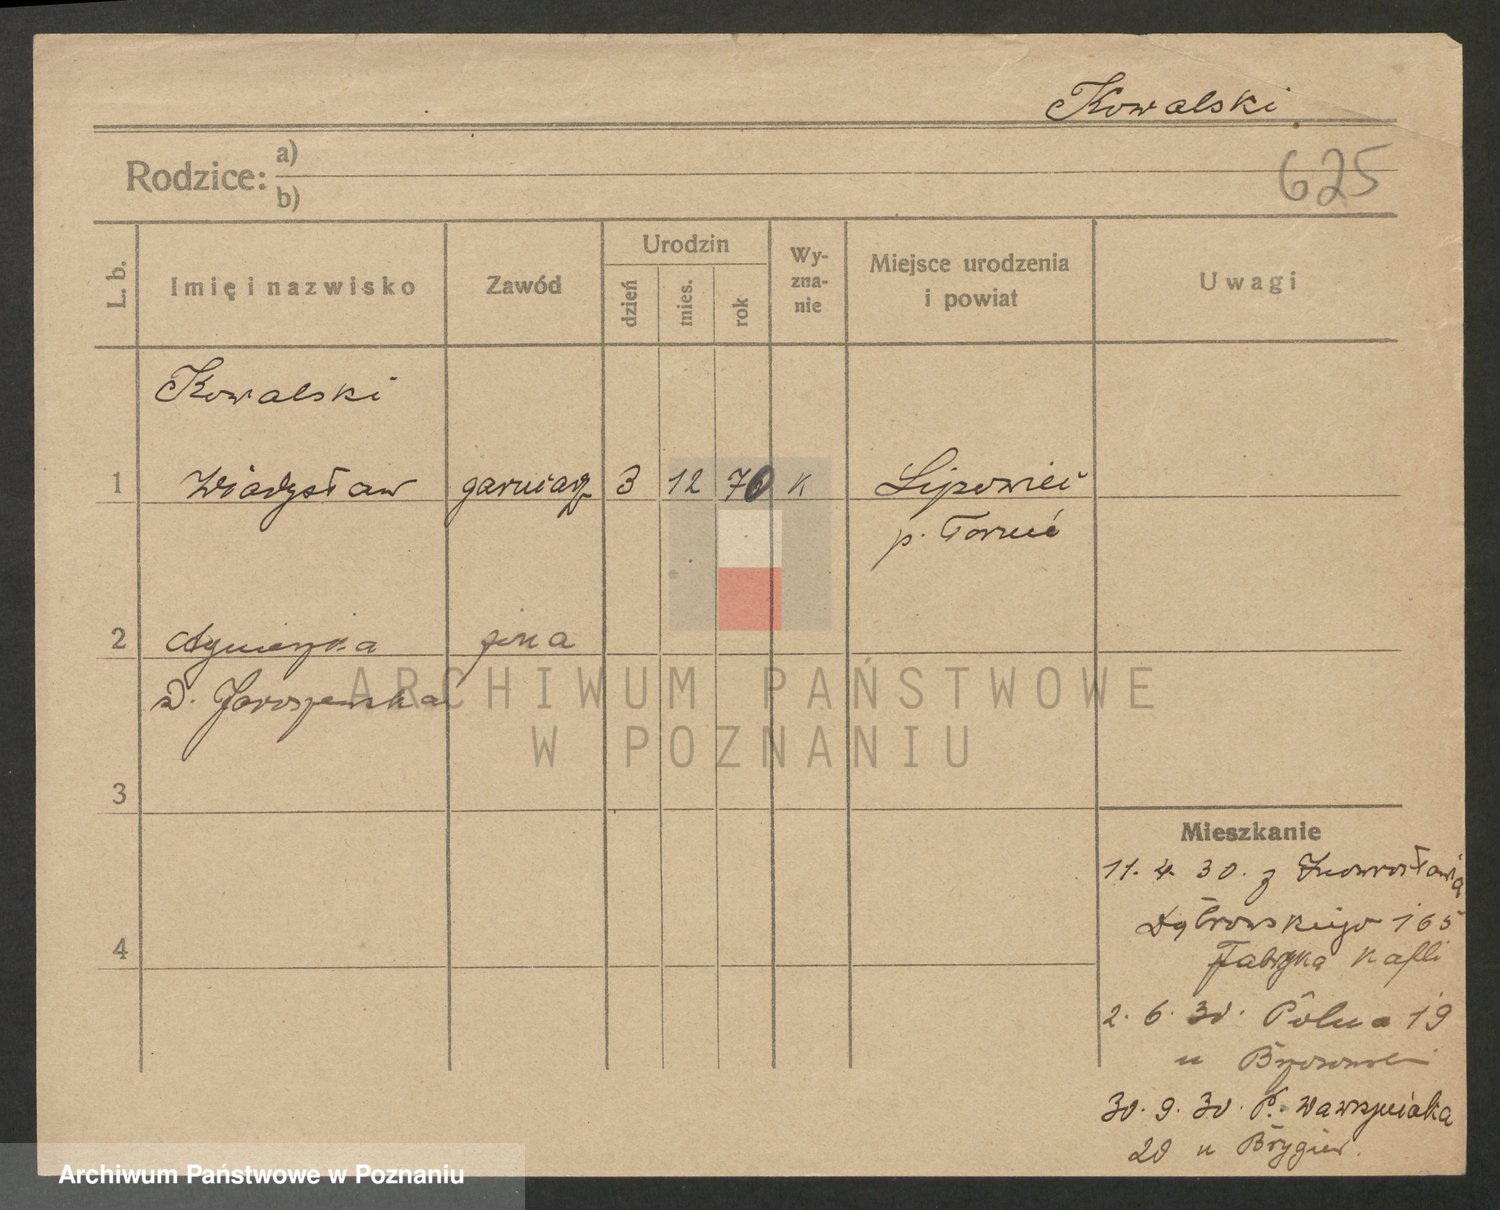 Kowalski
625
Rodzice: a)
b)
L. b.
Imię i nazwisko
Zawód
Urodzin
dzień
mies.
rok
Wy-
zna-
nie
Miejsce urodzenia
i powiat
Uwagi
Kowalski
1 Władysław garncarz 3 12 70 K Lipowiec
p. Toruń
2 Agnieszka żona
d. Jaroszewska
ARCHIWUM PAŃSTWOWE
W POZNANIU
3
Mieszkanie
11. 4. 30. z Inowrocławia
Dąbrowskiego 165
4
Fabryka Kafli
2. 6. 30. Polna 19
u
30. 9. 30. P. Wawrzyniaka
20 u Brygier.
Archiwum Państwowe w Poznaniu